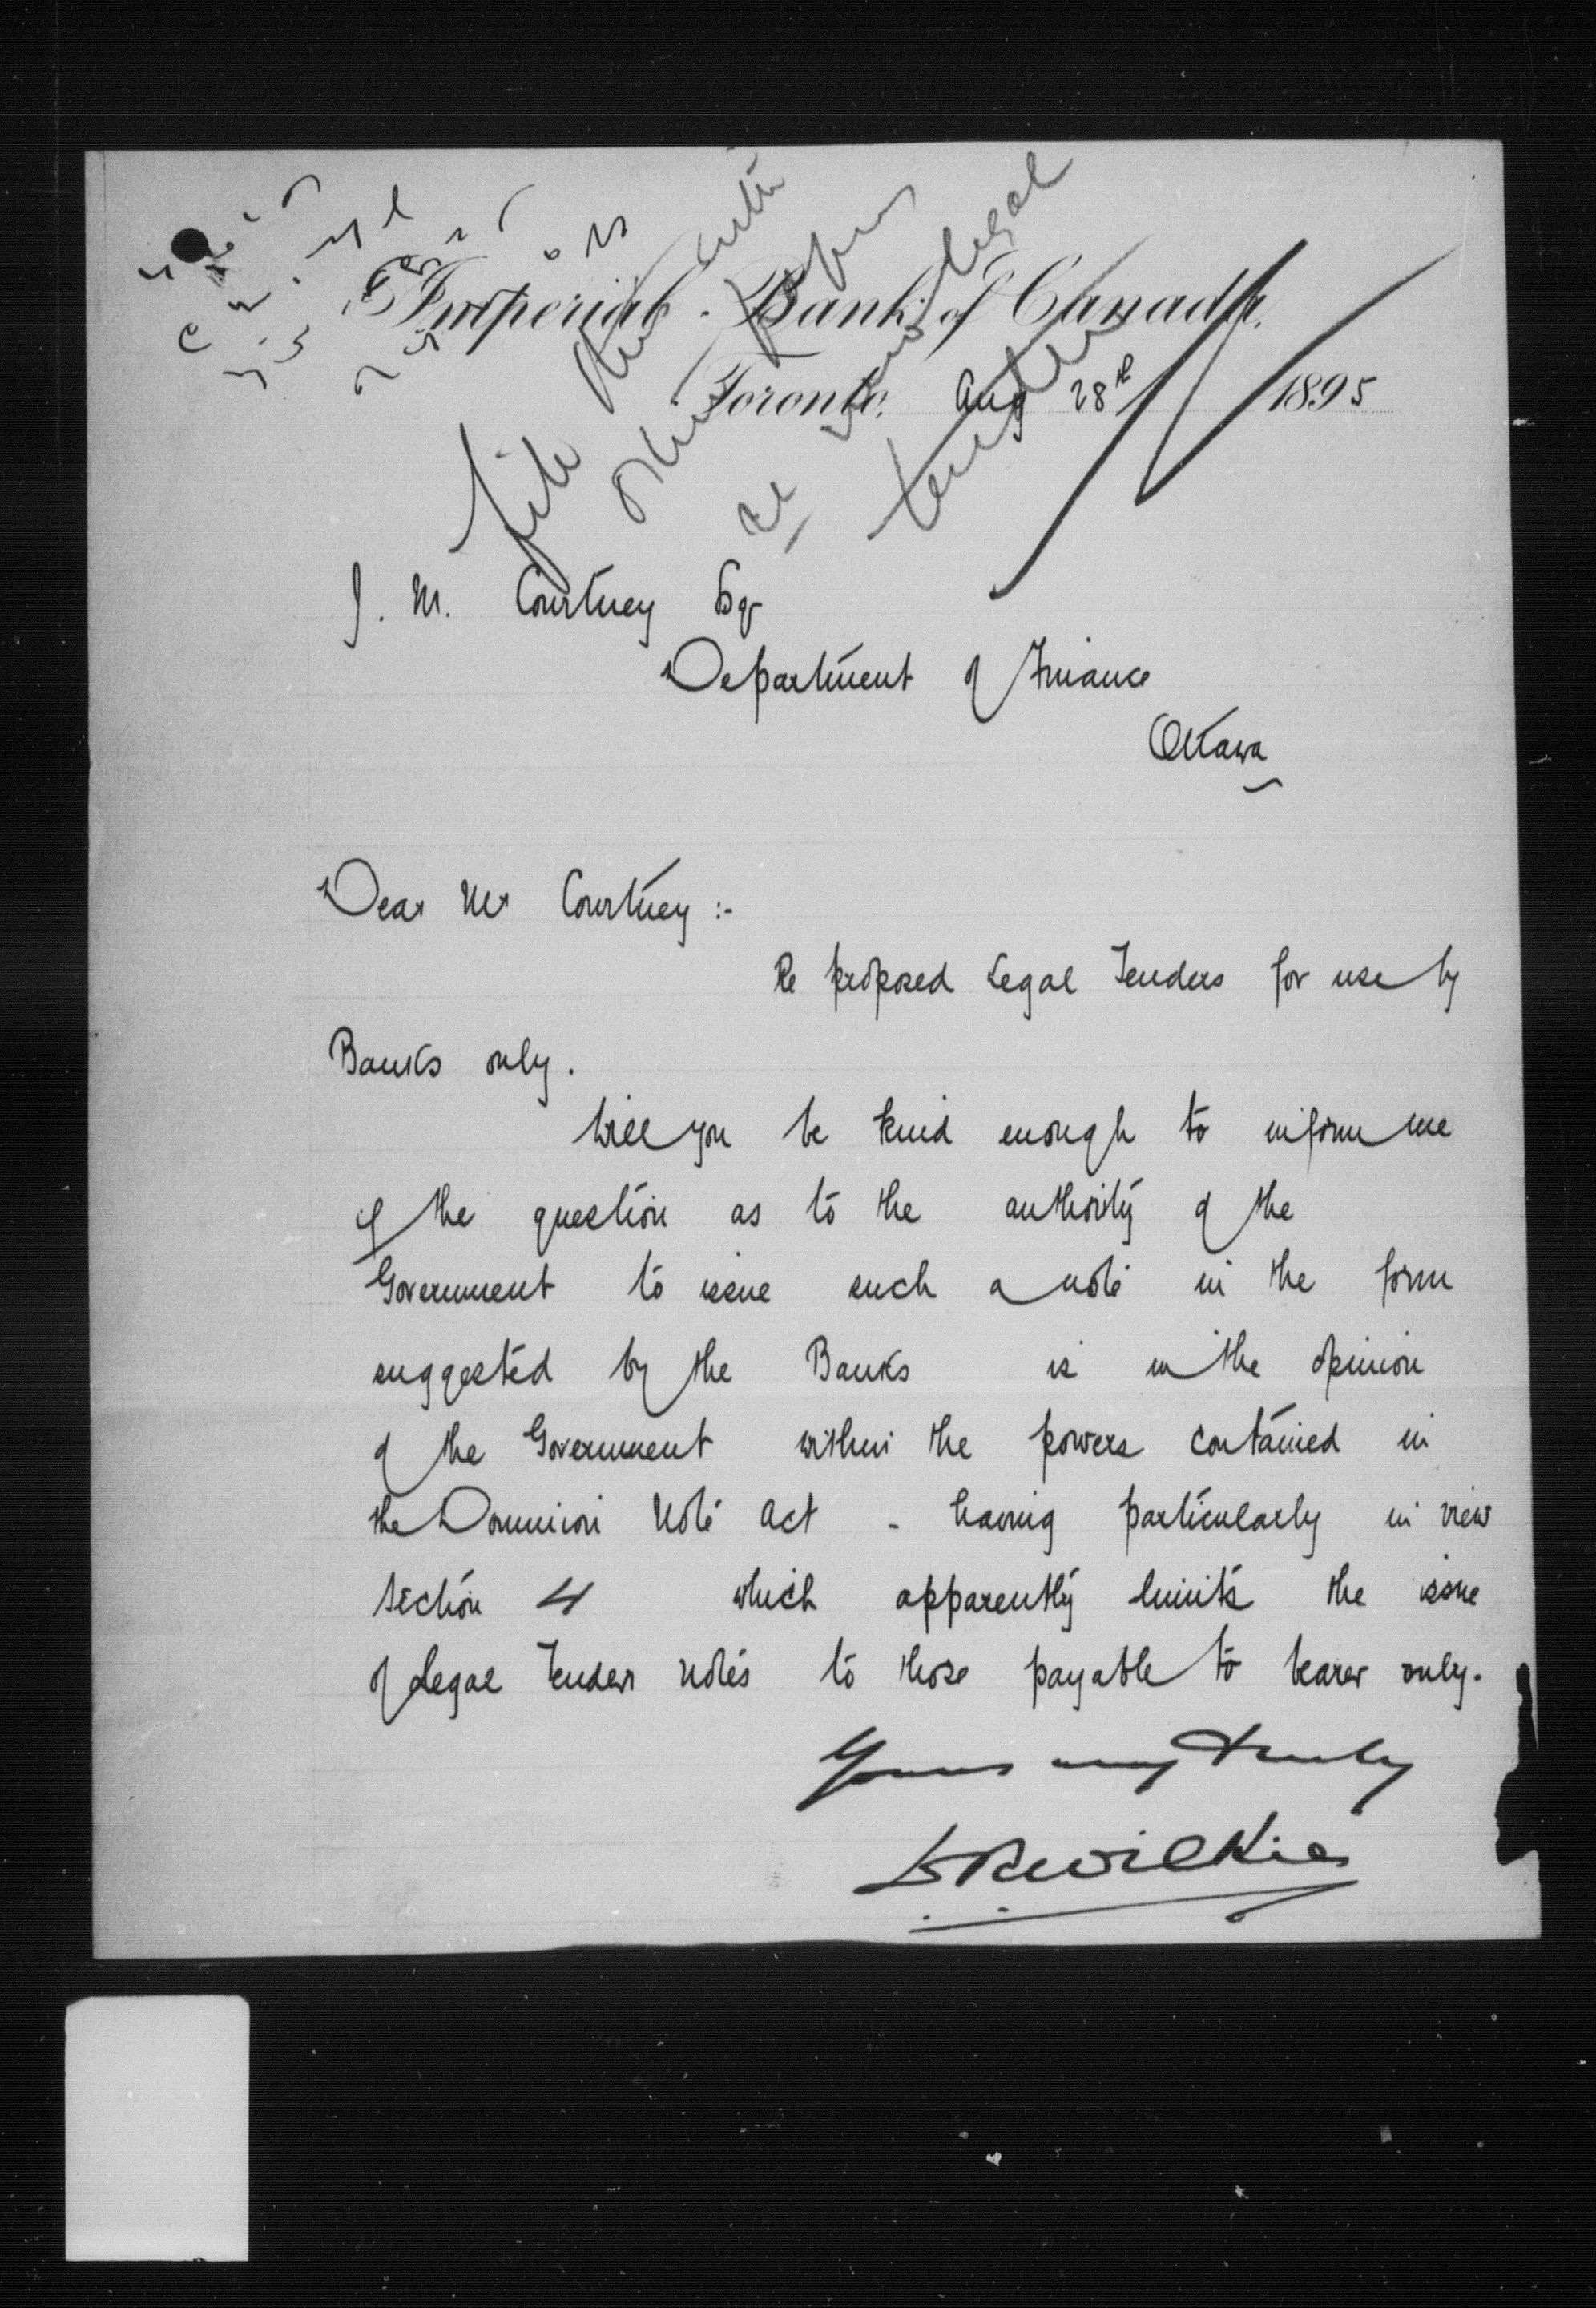 Imperial Bank of Canada.
Toronto, Aug 28th 1895
file this with
other papers
re new legal
tenders
J. M. Courtney Esqr
Department of Finance
Ottawa
Dear Mr Courtney :-
Re proposed Legal Tenders for use by
Banks only.
Will you be kind enough to inform me
if the question as to the authority of the
Government to issue such a note in the form
suggested by the Banks is in the opinion
of the Government within the powers contained in
the Dominion Note Act - having particularly in view
section 4 which apparently limits the issue
of Legal Tender notes to those payable to bearer only.
Yours very truly
D R Wilkie